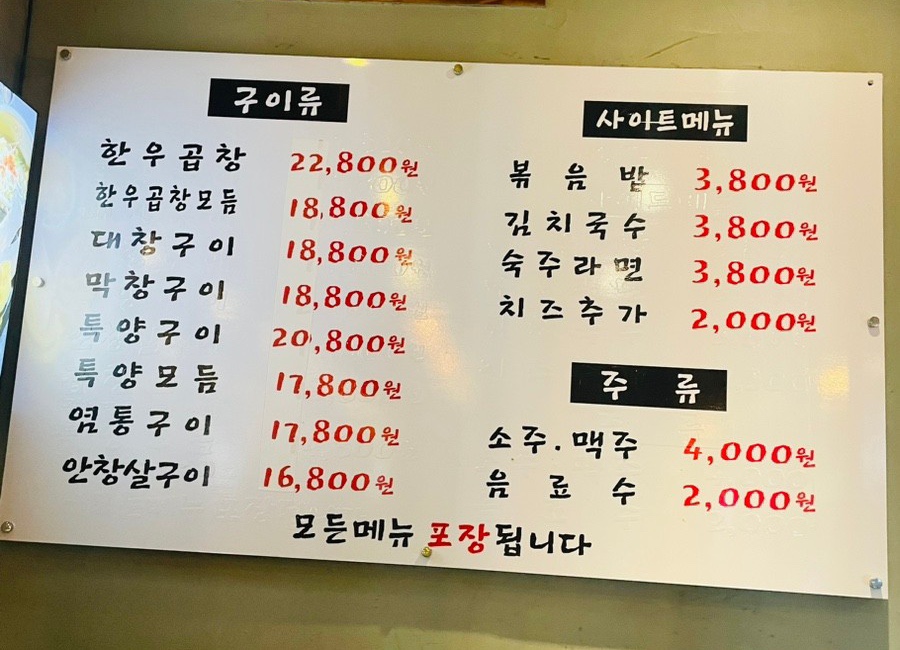 구이류
한우곱창 22,800원
한우곱창모듬 18,800원
대창구이 18,800원
막창구이 18,800원
특양구이 20,800원
특양모듬 17,800원
염통구이 17,800원
안창살구이 16,800원
사이트메뉴
볶음밥 3,800원
김치국수 3,800원
숙주라면 3,800원
치즈추가 2,000원
주류
소주.맥주 4,000원
음료수 2,000원
모든메뉴 포장됩니다